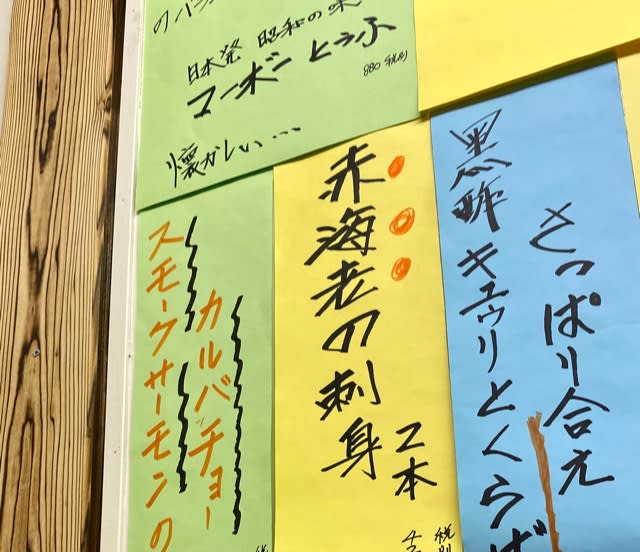 のバラ
日本発 昭和の味
マーボーとうふ
880 税別
懐かしい...
スモークサーモンの
カルパッチョー
税
赤海老の刺身
2本
税別
黒酢 キュウリとくらげ
さっぱり合え